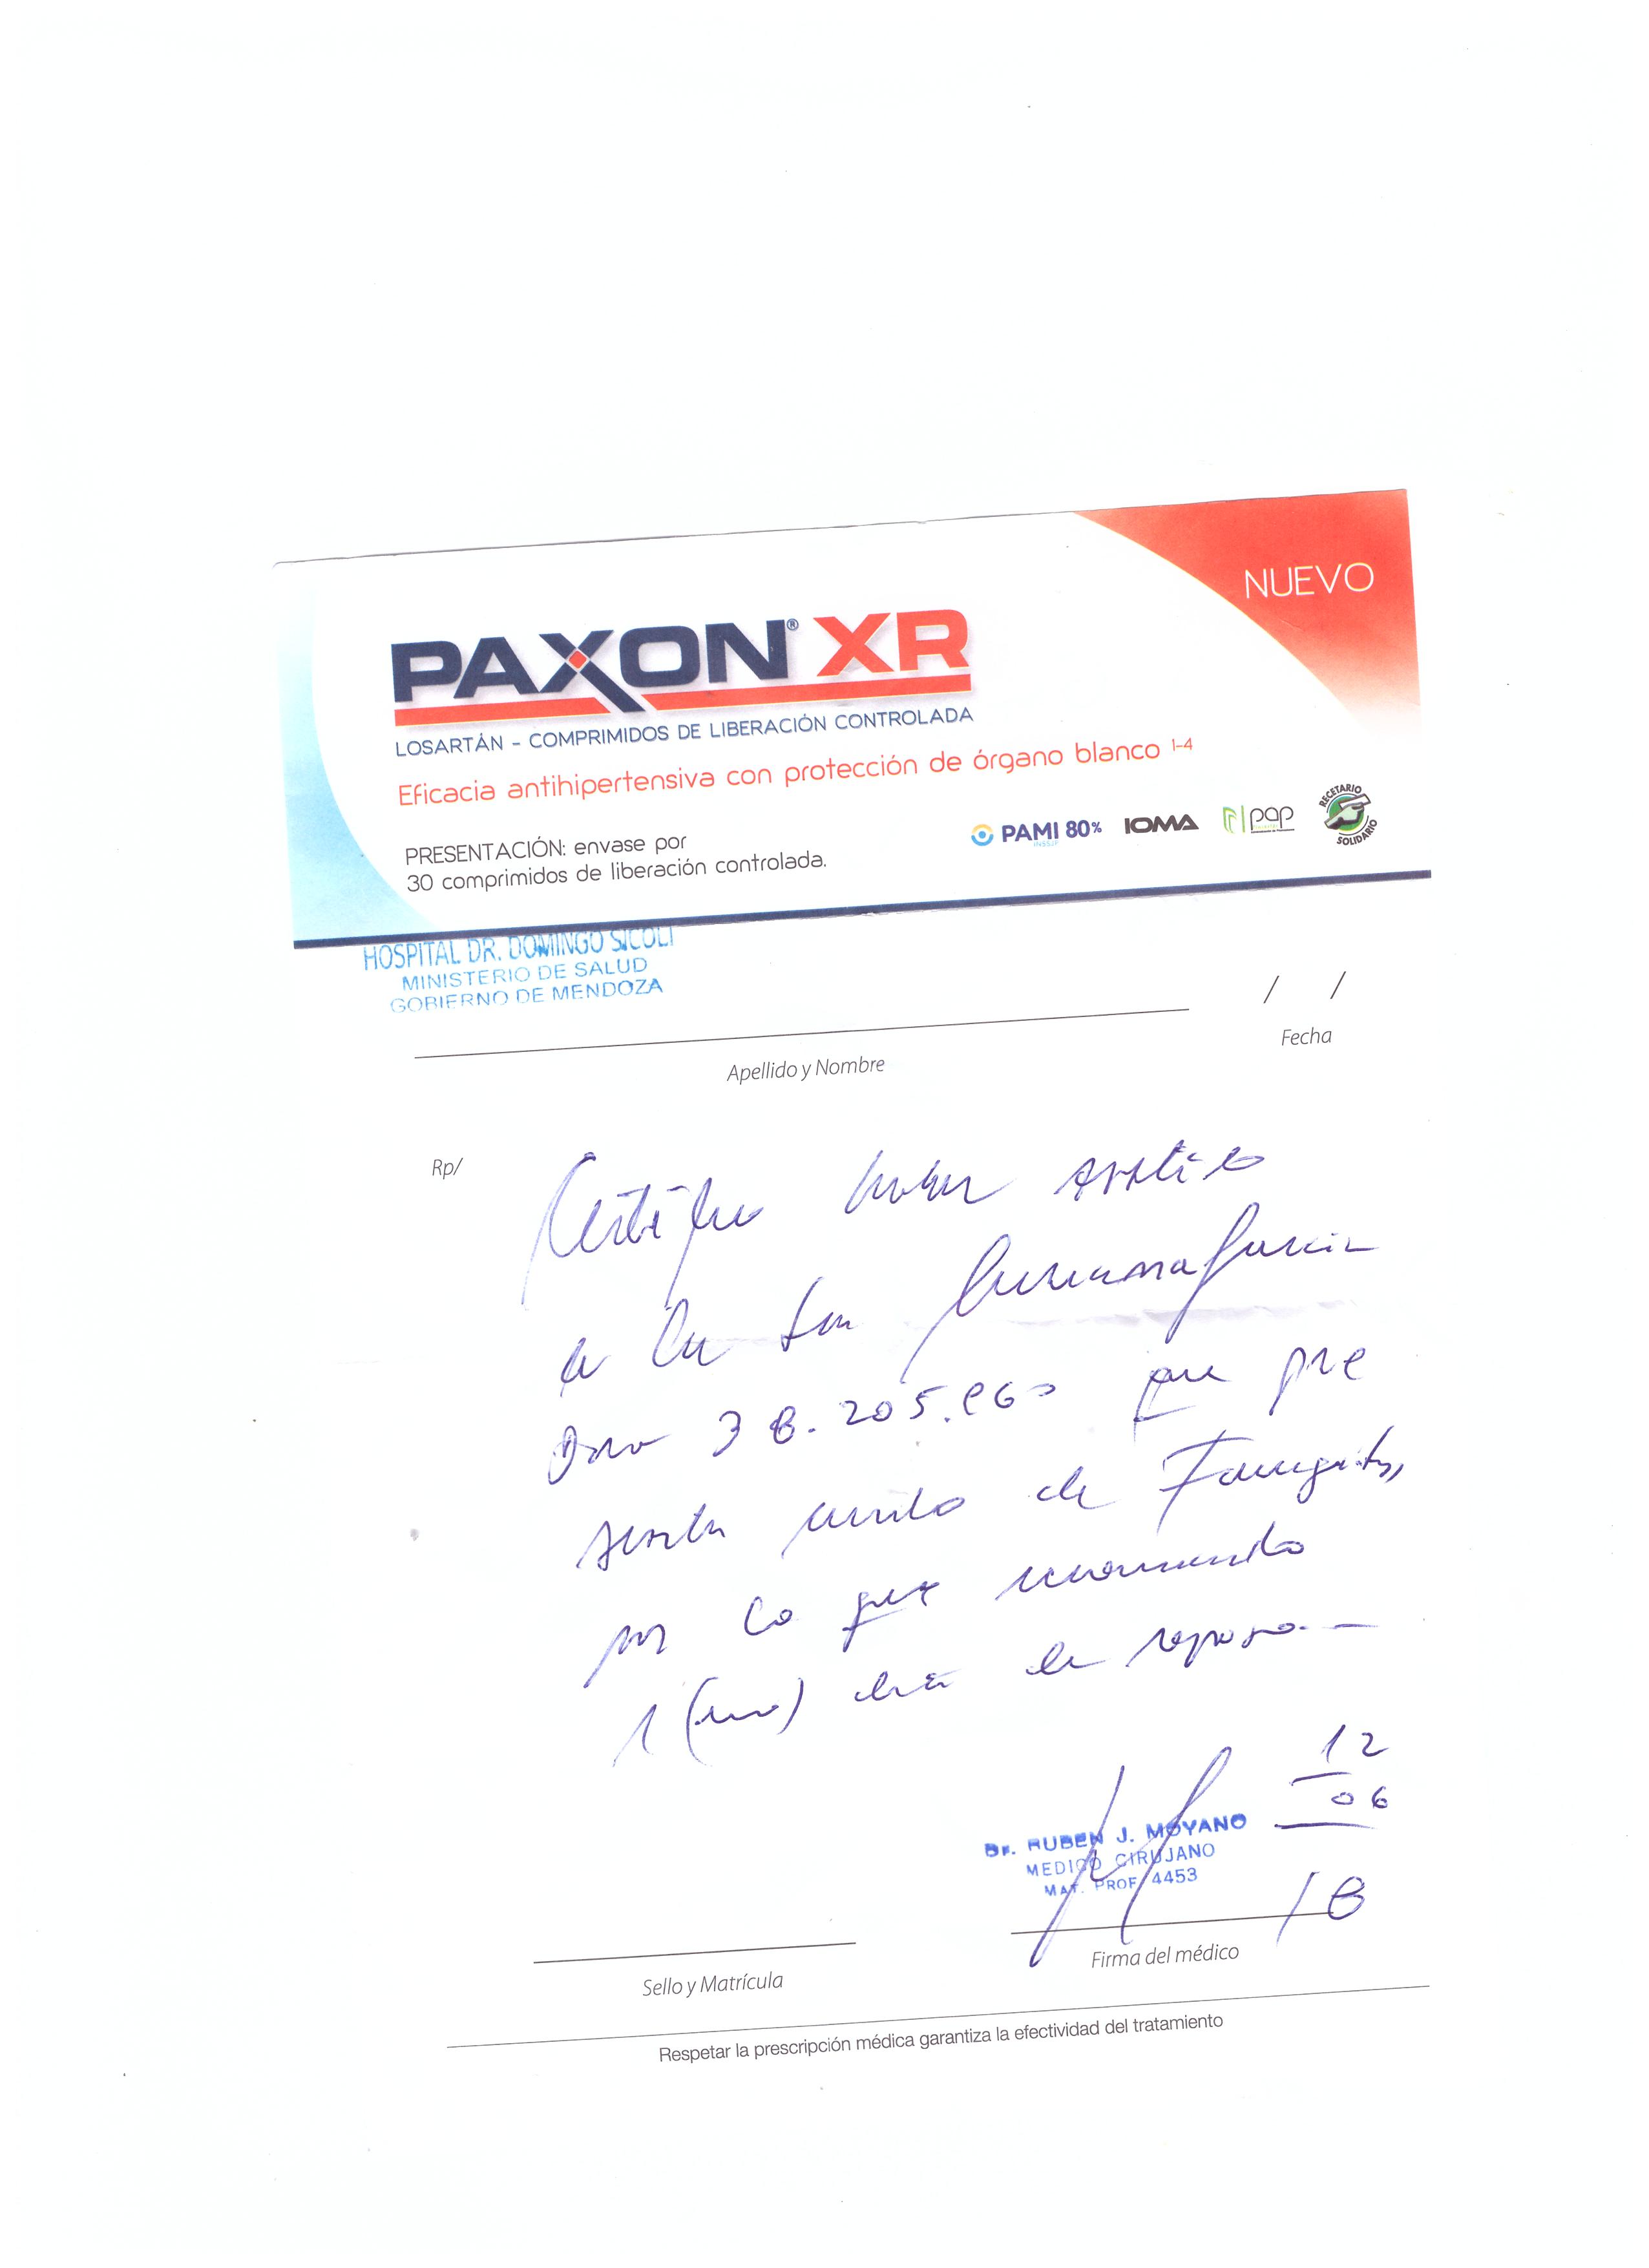 NUEVO
PAXON® XR
LOSARTÁN - COMPRIMIDOS DE LIBERACIÓN CONTROLADA
Eficacia antihipertensiva con protección de órgano blanco 1-4
PRESENTACIÓN: envase por
30 comprimidos de liberación controlada.
PAMI 80% IOMA pap RECETARIO SOLIDARIO
INSSJP
HOSPITAL DR. DOMINGO SICOLI
MINISTERIO DE SALUD
GOBIERNO DE MENDOZA
/ /
Apellido y Nombre Fecha
Rp/
Certifico haber asistido
a la Sra Garcia
38.205. que pre
senta cuadro de Faringitis,
por lo que recomiendo
1 (uno) día de reposo. -
12
06
18
Dr. RUBEN J. MOYANO
MEDICO CIRUJANO
MAT. PROF. 4453
Sello y Matrícula Firma del médico
Respetar la prescripción médica garantiza la efectividad del tratamiento